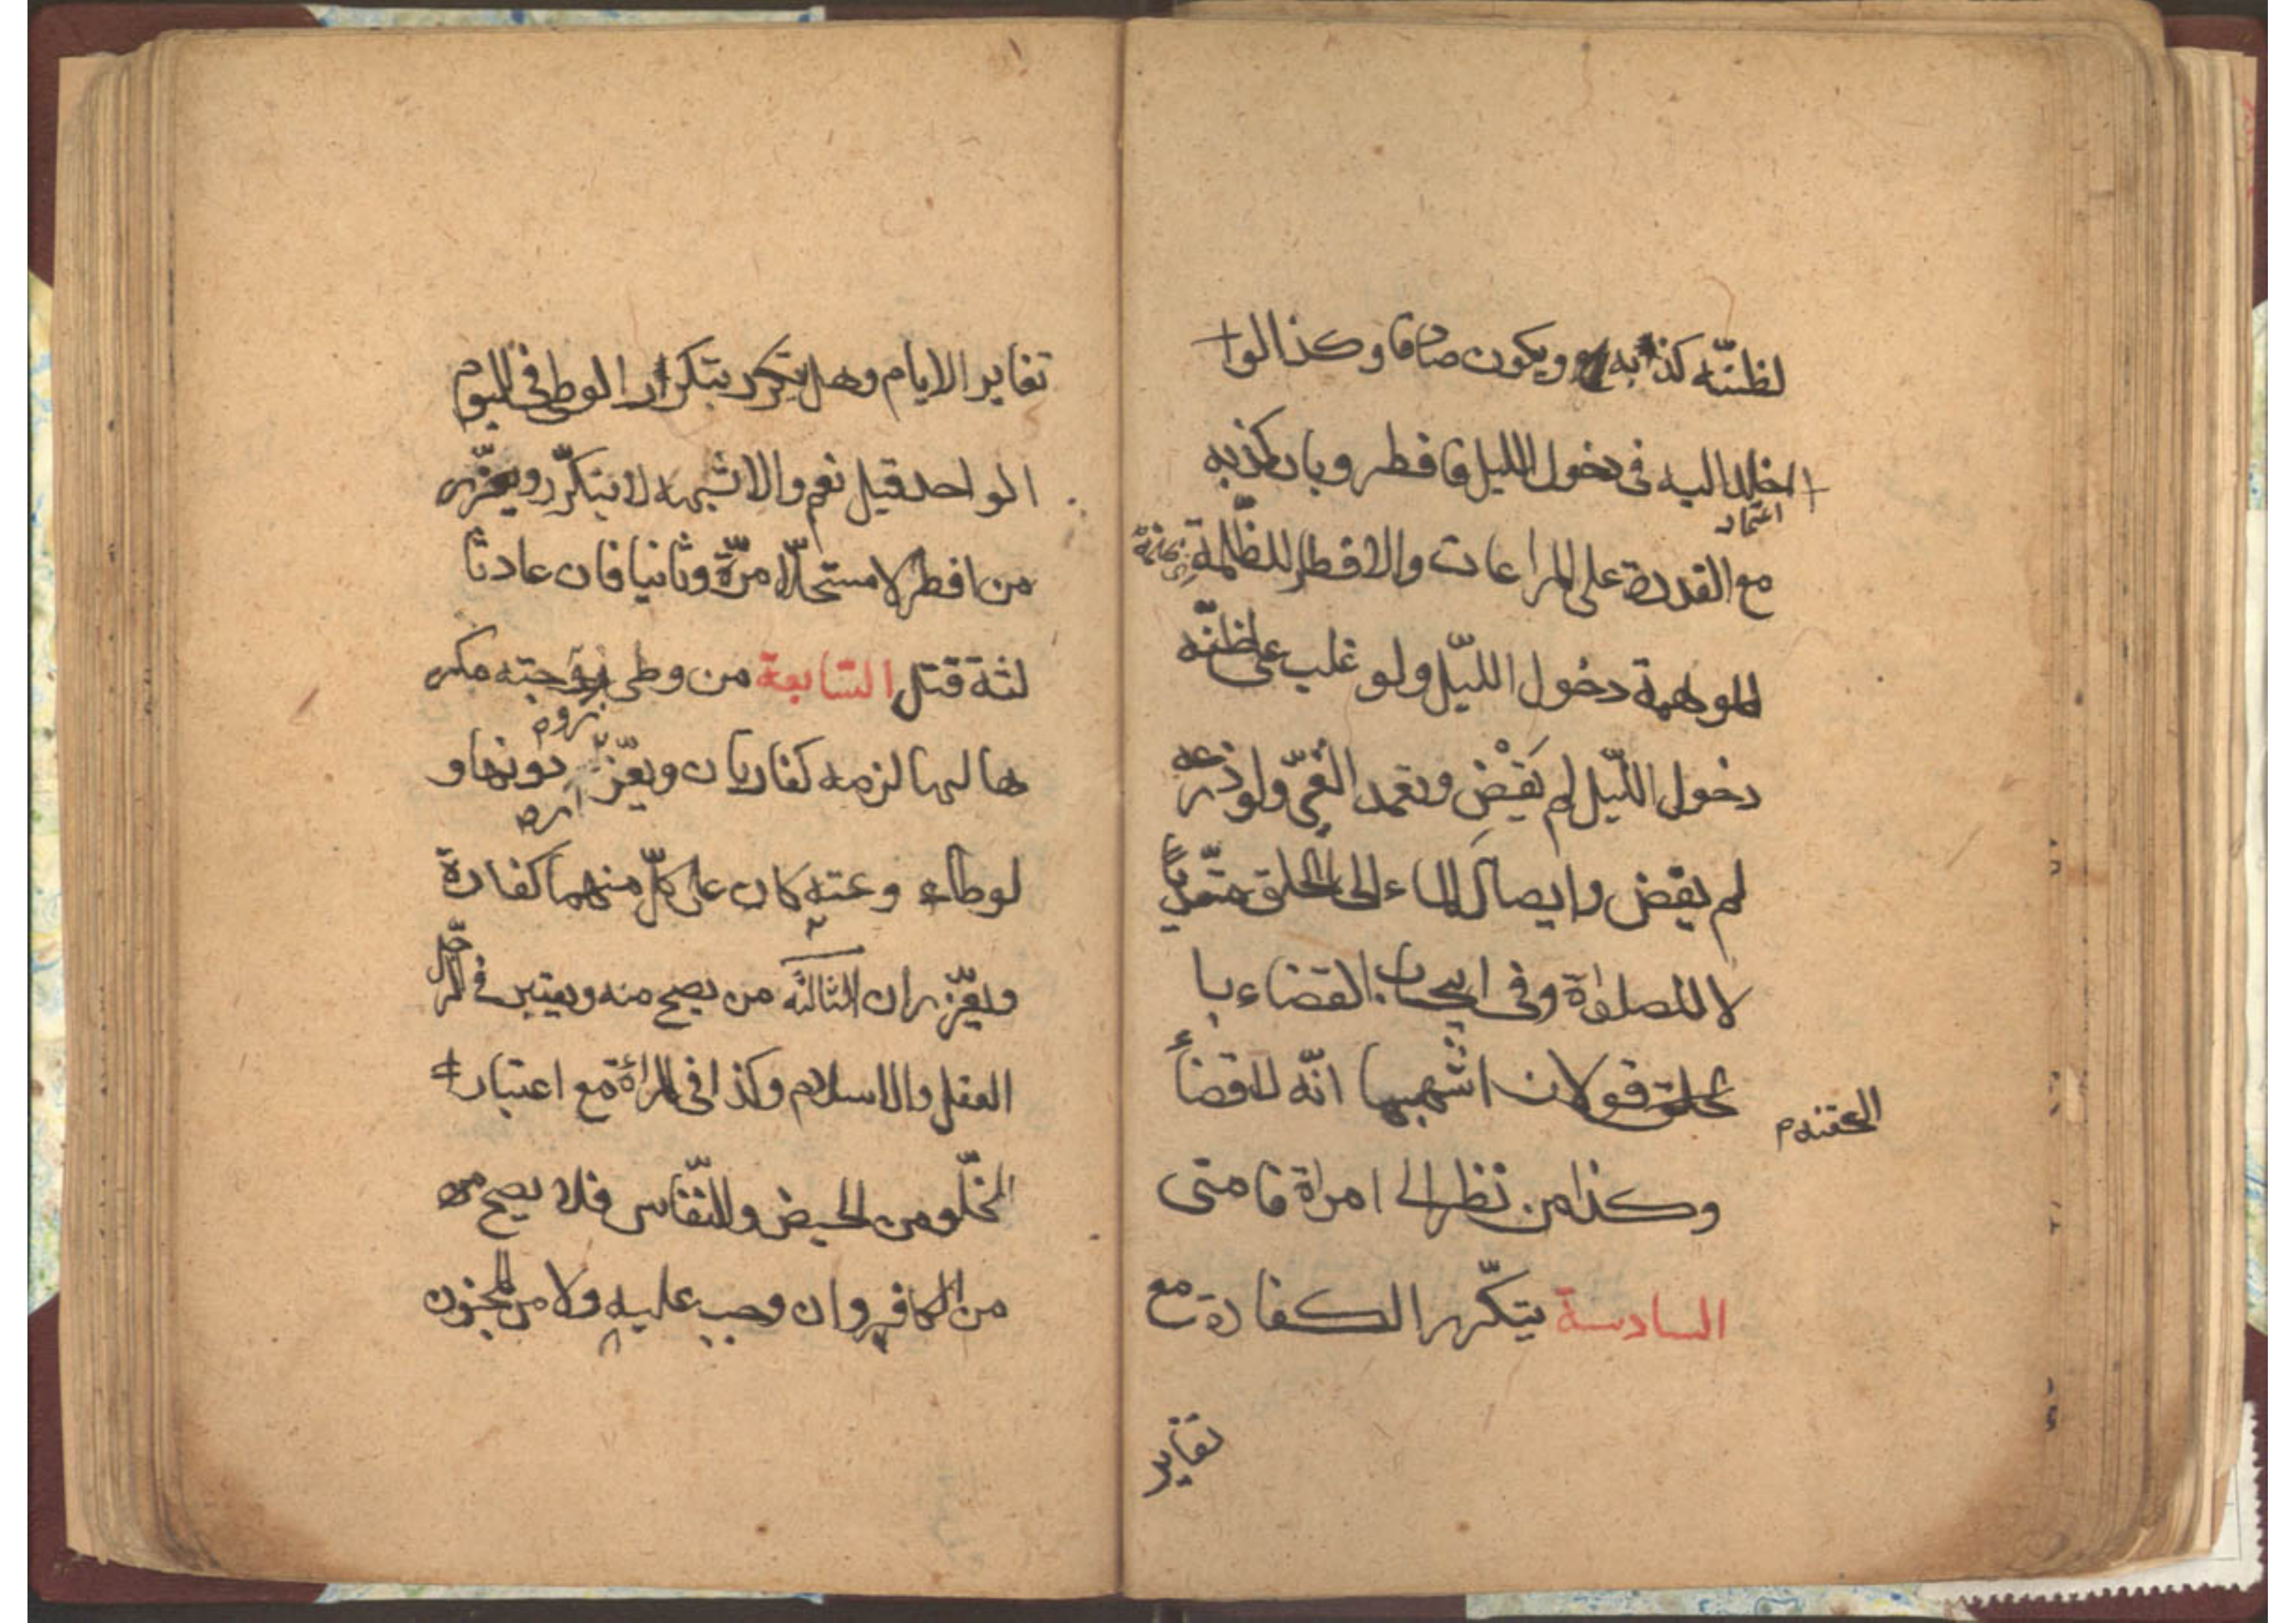 لظنّه كذبه ويكون صادقا وكذا لو ا
خلد اليه فى دخول الليل فافطر وبان كذبه
اعتماد
مع القدرة على المراعات والافطار للظّلمة
الموهمة دخول الليّل ولو غلب على ظنّه
دخول اللّيل لم يَقْضِ وتعمد القىّ ولو ذرعه
لم يقض وايصال الماء الى الحلق متعدّياً
لا للصلوٰة وفى ايجاب القضاء با
لحلق قولان اشبهها انّه لا قضاءً
الحقنه م
وكذا من نظر الى امراة فامتى
السادسة يتكّرر الكفارة مع
تغاير
تغاير الايام وهل يتكرر بتكرار الوطى فى اليوم
الواحد قيل نعم والاشبه لا يتكرّر ويعزّر
من افطر لا مستحلّا مرّة وثانيا فان عاد ثا
لثة قتل السّابعة من وطى زوجته مكر
ها لها لزمه كفارتان ويعزّر دونها و
لو طاوعته كان على كلّ منهما كفارة
ويعزّران الثالثه من يصح منه ويعتبر فى الرّجل
العقل والاسلام وكذا فى المرأة مع اعتبار
الخلّو من الحيض والنّفاس فلا يصح من
من الكافر وان وجب عليه ولا من المجنون